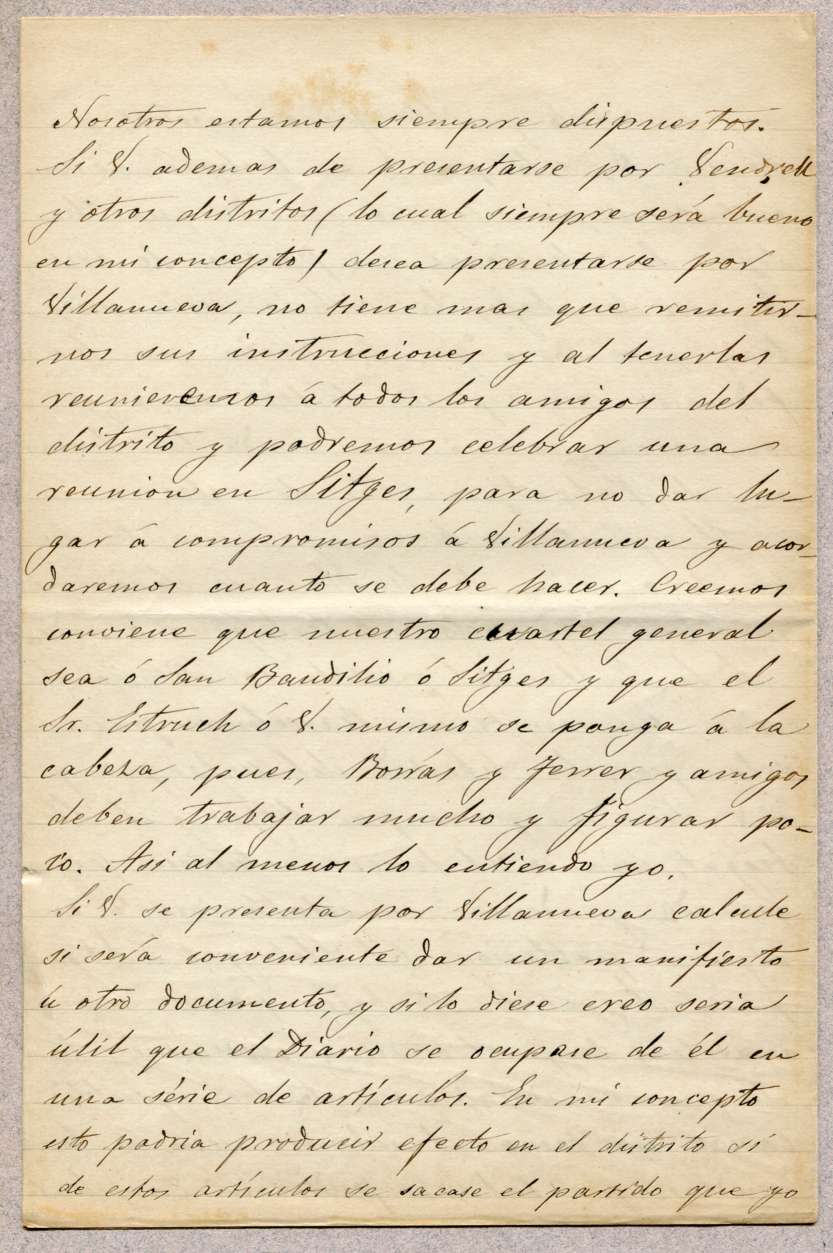 Nosotros estamos siempre dispuestos.
Si V. ademas de presentarse por Vendrell
y otros distritos (lo cual siempre será bueno
en mi concepto) desea presentarse por
Villanueva, no tiene mas que remitir-
nos sus instrucciones y al tenerlas
reunieremos á todos los amigos del
distrito y podremos celebrar una
reunion en Sitges, para no dar lu-
gar á compromisos á Villanueva y acor-
daremos cuanto se debe hacer. Creemos
conviene que nuestro cuartel general
sea ó San Baudilio ó Sitges y que el
Sr. Estruch ó V. mismo se ponga á la
cabeza, pues, Borrás y Ferrer y amigos
deben trabajar mucho y figurar po-
co. Asi al menos lo entiendo yo.
Si V. se presenta por Villanueva calcule
si será conveniente dar un manifiesto
ú otro documento, y si lo diese creo seria
útil que el Diario se ocupase de él en
una série de artículos. En mi concepto
esto podria producir efecto en el distrito si
de estos artículos se sacase el partido que yo